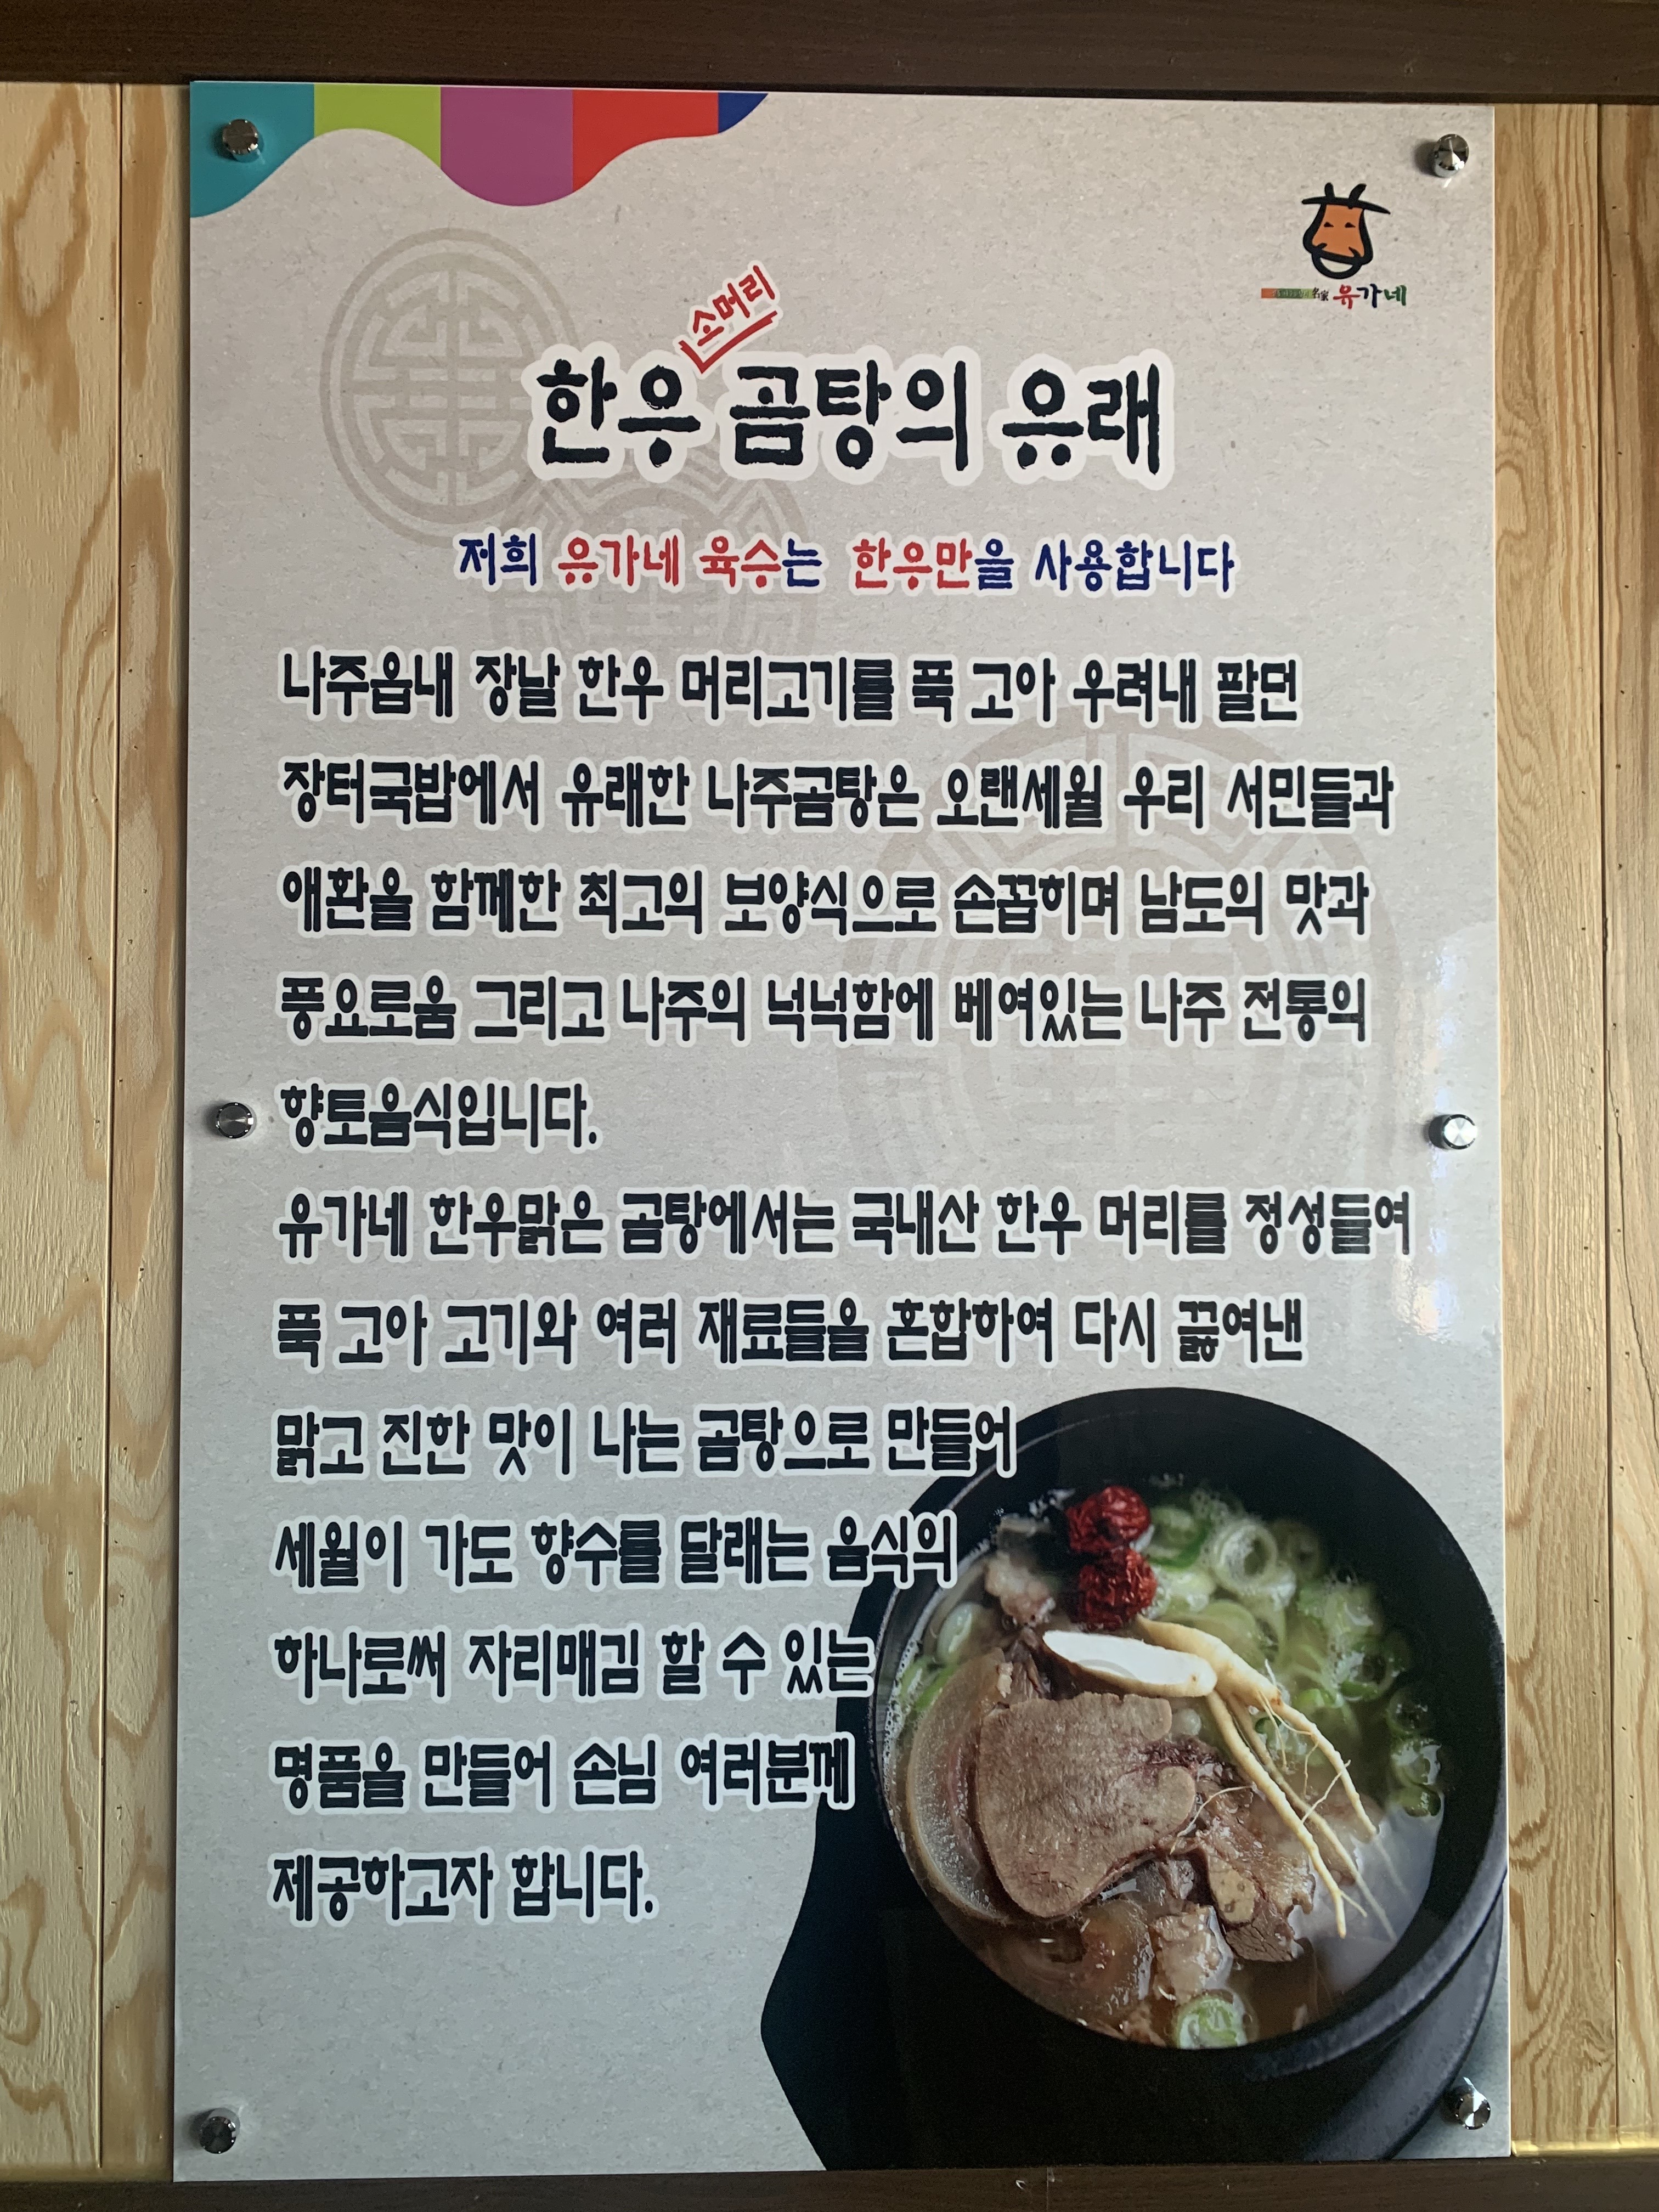 名家 유가네
소머리
한우 곰탕의 유래
저희 유가네 육수는 한우만을 사용합니다
나주읍내 장날 한우 머리고기를 푹 고아 우려내 팔던
장터국밥에서 유래한 나주곰탕은 오랜세월 우리 서민들과
애환을 함께한 최고의 보양식으로 손꼽히며 남도의 맛과
풍요로움 그리고 나주의 넉넉함에 베여있는 나주 전통의
향토음식입니다.
유가네 한우맑은 곰탕에서는 국내산 한우 머리를 정성들여
푹 고아 고기와 여러 재료들을 혼합하여 다시 끓여낸
맑고 진한 맛이 나는 곰탕으로 만들어
세월이 가도 향수를 달래는 음식의
하나로써 자리매김 할 수 있는
명품을 만들어 손님 여러분께
제공하고자 합니다.